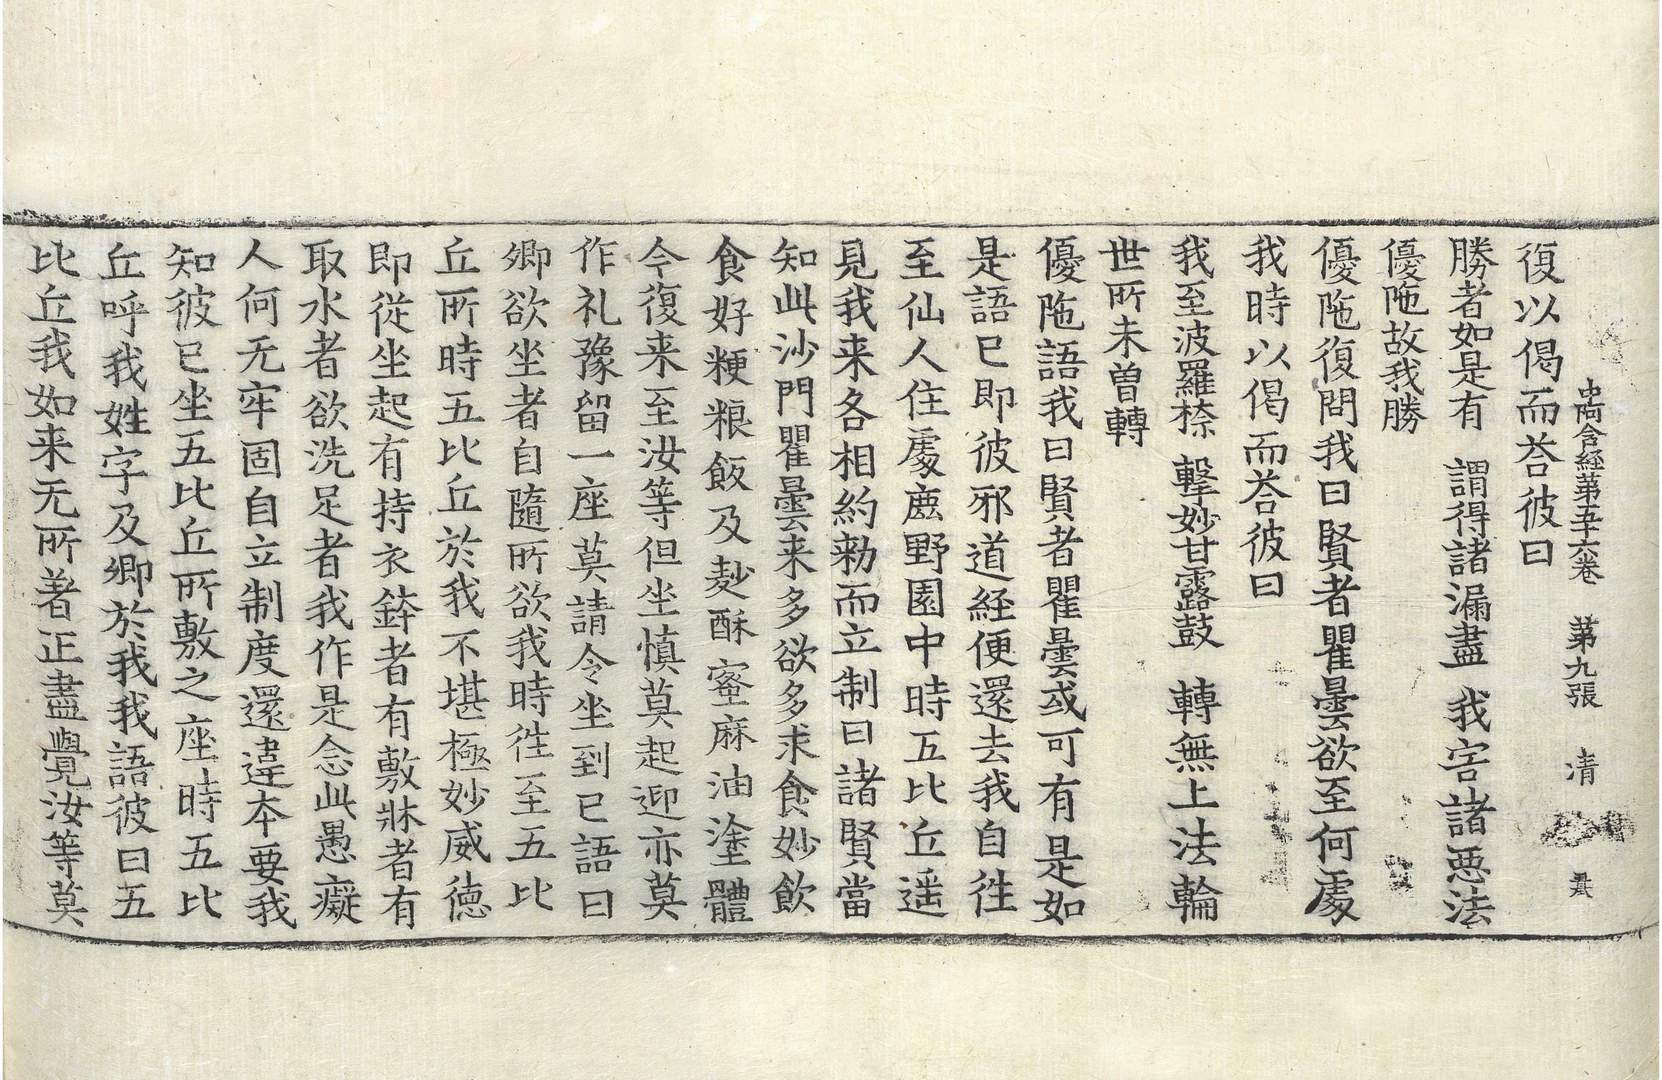 中阿含経第五十六卷　第九張　清
復以偈而荅彼曰
勝者如是有　謂得諸漏盡　我害諸惡法
優陁故我勝
優陁復問我曰賢者瞿曇欲至何處
我時以偈而荅彼曰
我至波羅㮈　擊妙甘露鼓　轉無上法輪
世所未曽轉
優陁語我曰賢者瞿曇或可有是如
是語已即彼邪道経便還去我自徃
至仙人住處鹿野園中時五比丘遥
見我来各相約勑而立制曰諸賢當
知此沙門瞿曇来多欲多求食妙飲
食好粳粮飯及麨酥蜜麻油塗體
今復来至汝等但坐慎莫起迎亦莫
作礼豫留一座莫請令坐到已語曰
卿欲坐者自隨所欲我時徃至五比
丘所時五比丘於我不堪極妙威德
即從坐起有持衣鉢者有敷牀者有
取水者欲洗足者我作是念此愚癡
人何无牢固自立制度還違本要我
知彼已坐五比丘所敷之座時五比
丘呼我姓字及卿於我我語彼曰五
比丘我如来无所著正盡覺汝等莫